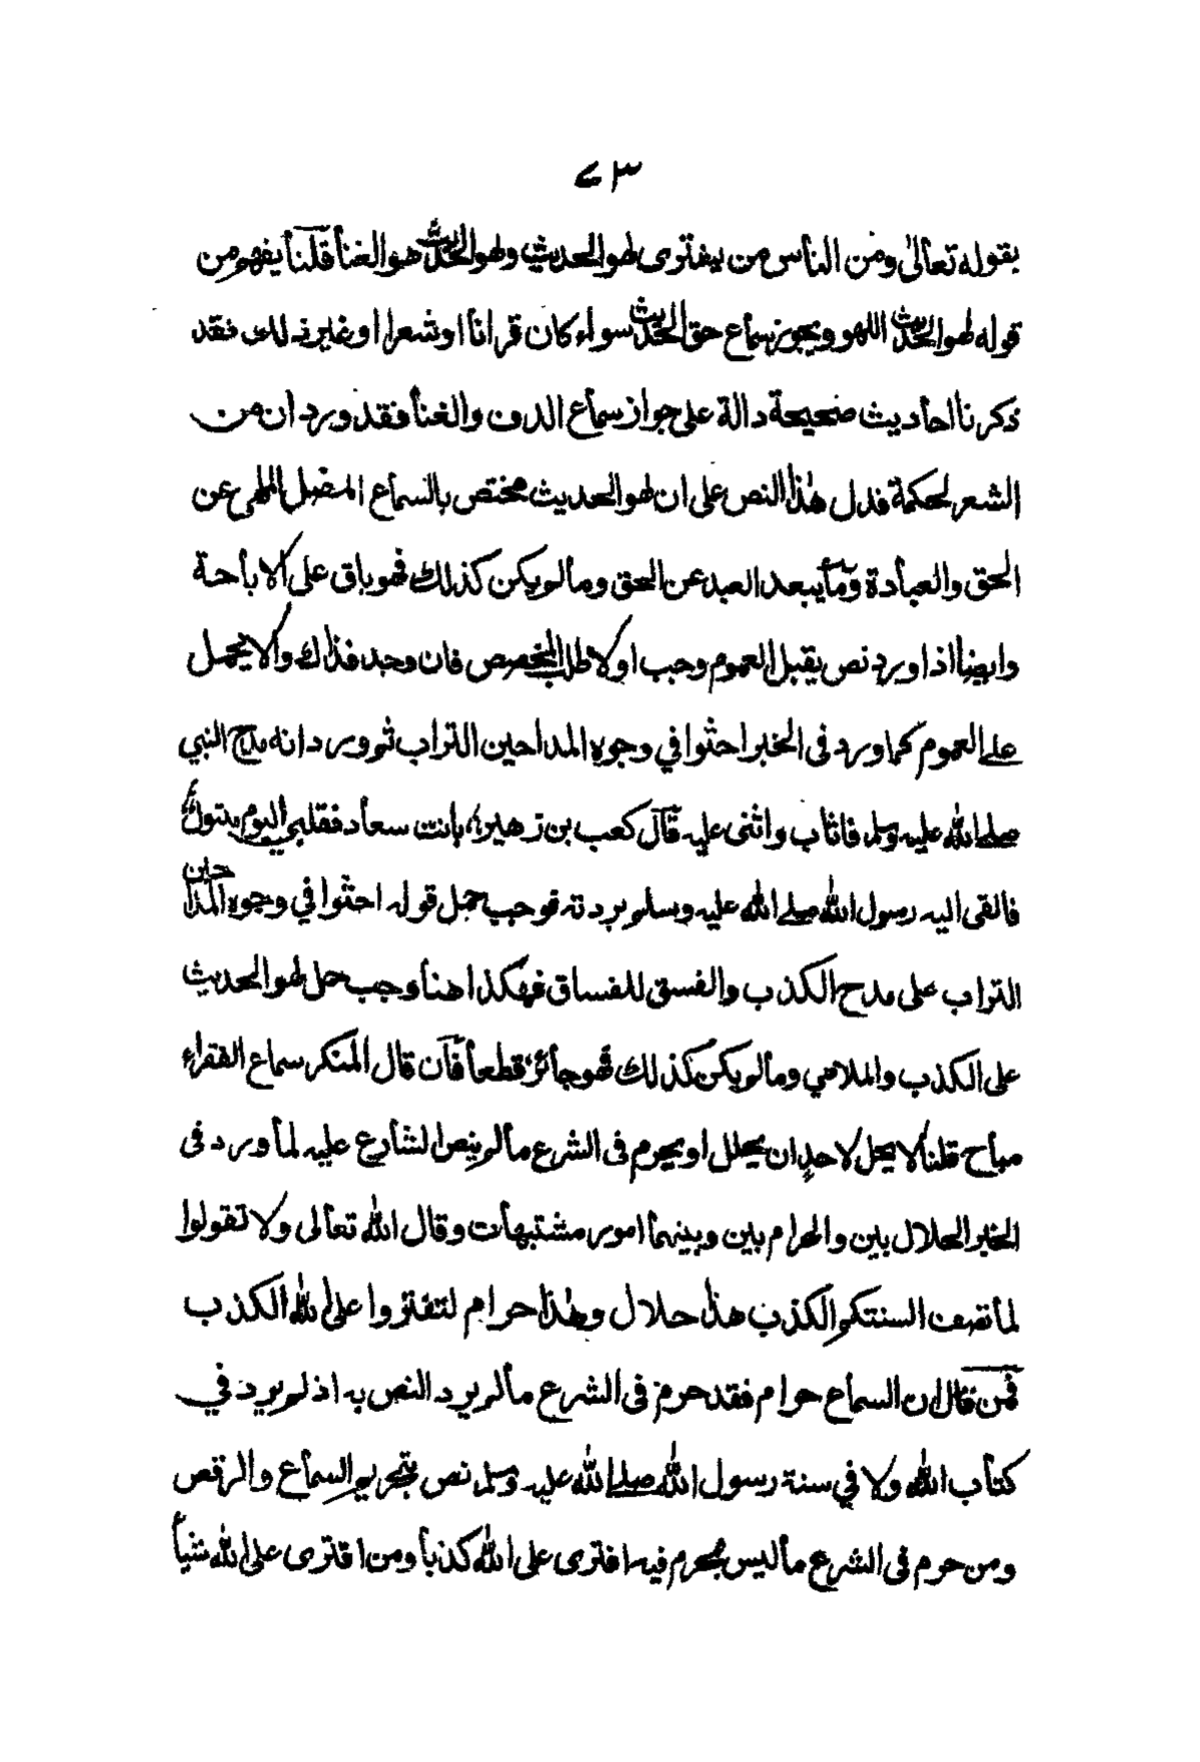 ٧٣
بقوله تعالى ومن الناس من يشترى لهو الحديث ولهو الحديث هو الغنا قلنا يفهم من
قوله لهو الحديث اللهو ويجوز سماع حق الحديث سواء كان قرانا او شعرا او غير ذلك فقد
ذكرنا احاديث صحيحة دالة على جواز سماع الدف والغنا فقد ورد ان من
الشعر لحكمة فدل هذا النص على ان لهو الحديث مختص بالسماع المضل الملهى عن
الحق والعبادة وما يبعد العبد عن الحق وما لم يكن كذلك فهو باق على الاباحة
وايضا اذا ورد نص يقبل العموم وجب اولا طلب المخصص فان وجد فذالك والا يحمل
على العموم كما ورد فى الخبر احثوا في وجوه المداحين التراب ثم ورد انه مدح النبي
صلى الله عليه وسلم فاثاب واثنى عليه قال كعب بن زهير بانت سعاد فقلبي اليوم متبول
فالقى اليه رسول الله صلى الله عليه وسلم بردته فوجب حمل قوله احثوا في وجوه المداحين
التراب على مدح الكذب والفسق للفساق فهكذا هنا وجب حمل لهو الحديث
على الكذب والملاهي وما لم يكن كذلك فهو جائز قطعا فان قال المنكر سماع الفقراء
مباح قلنا لا يحل لاحد ان يحلل او يحرم فى الشرع ما لم ينص الشارع عليه لما ورد فى
الخبر الحلال بين والحرام بين وبينهما امور مشتبهات وقال الله تعالى ولا تقولوا
لما تصف السنتكم الكذب هذا حلال وهذا حرام لتفتروا على الله الكذب
فمن قال ان السماع حرام فقد حرم فى الشرع ما لم يرد النص به اذ لم يرد في
كتاب الله ولا في سنة رسول الله صلى الله عليه وسلم نص بتحريم السماع والرقص
ومن حرم فى الشرع ما ليس بمحرم فيه افترى على الله كذبا ومن افترى على الله شيأ